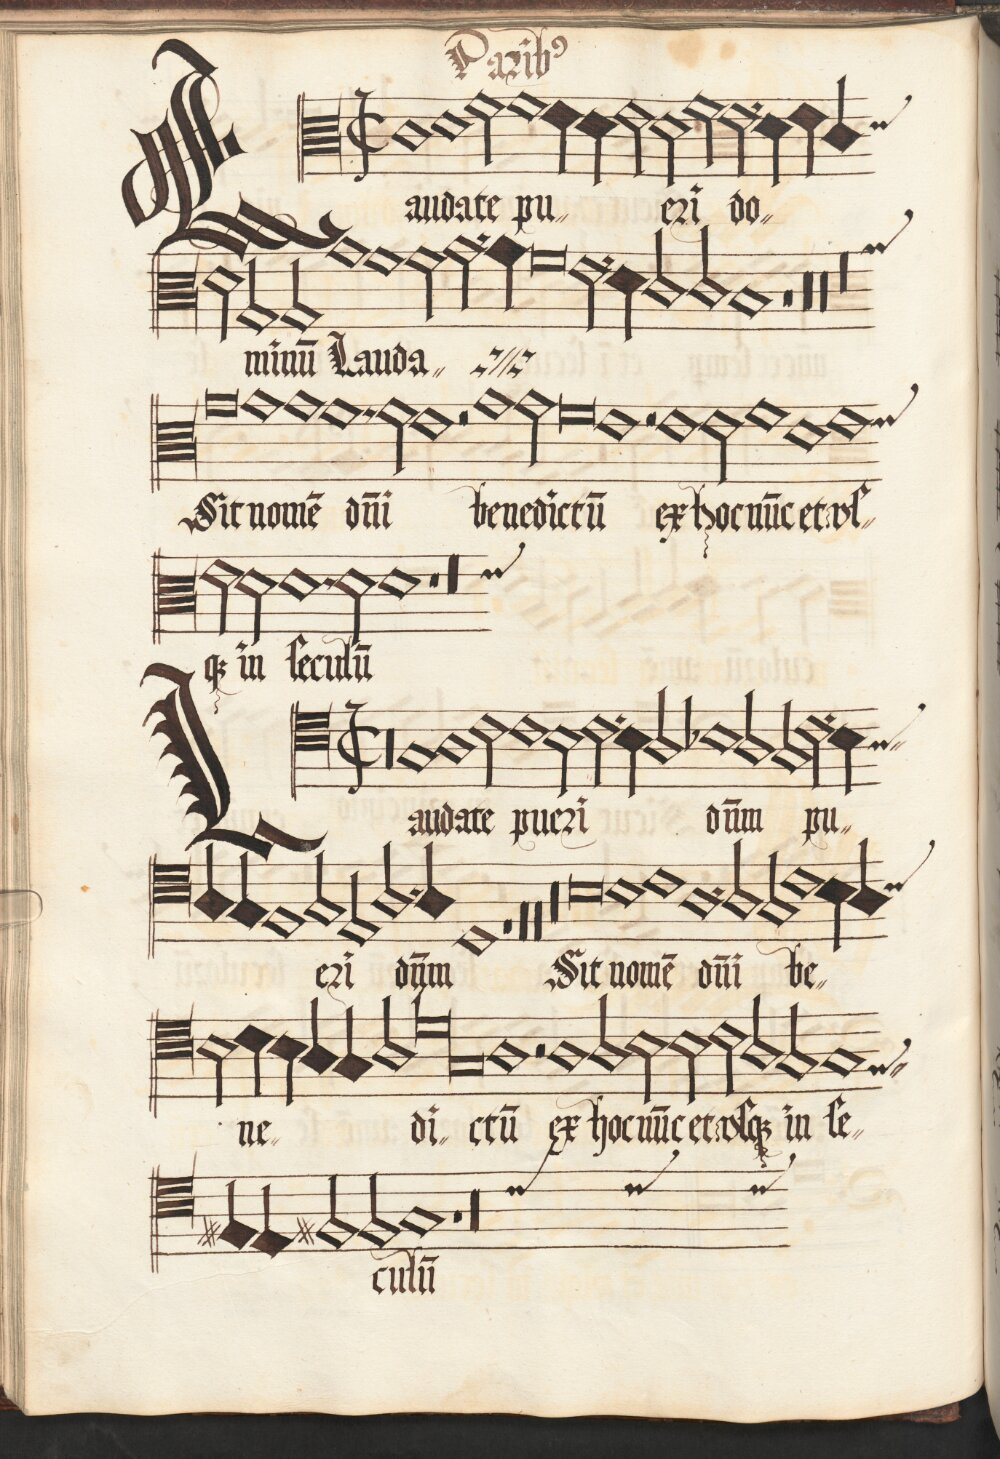 Parib⁹
Laudate pu„ eri do„
minū Lauda„
Sit nomē dn̄i benedictū ex hoc nūc et vſ„
qꝫ in ſeculū
Laudate pueri dn̄m pu„
eri dn̄m Sit nomē dn̄i be„
ne„ di„ ctū ex hoc nūc et vſqꝫ in ſe„
culū